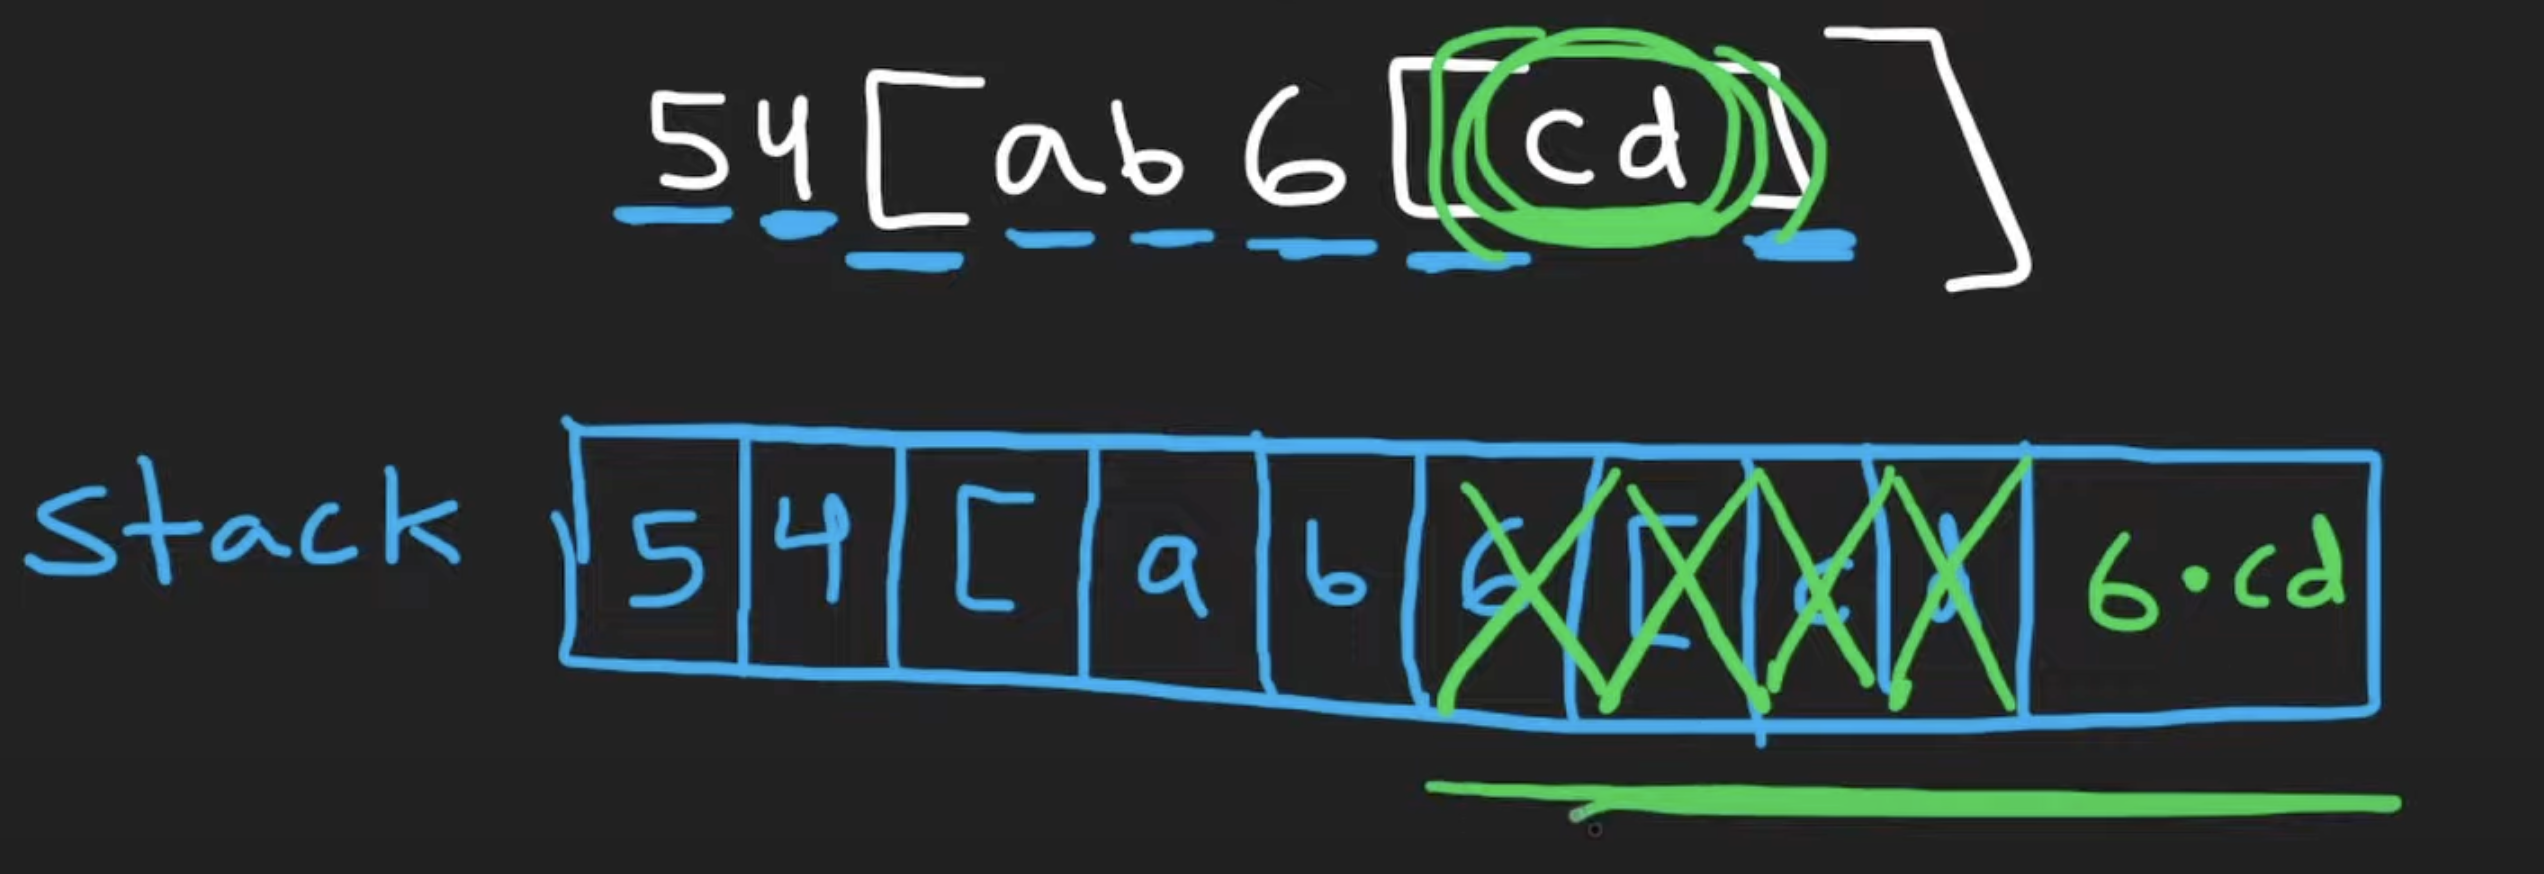 54[ab6[cd]]
stack 5 4 [ a b 6 [ c d 6·cd